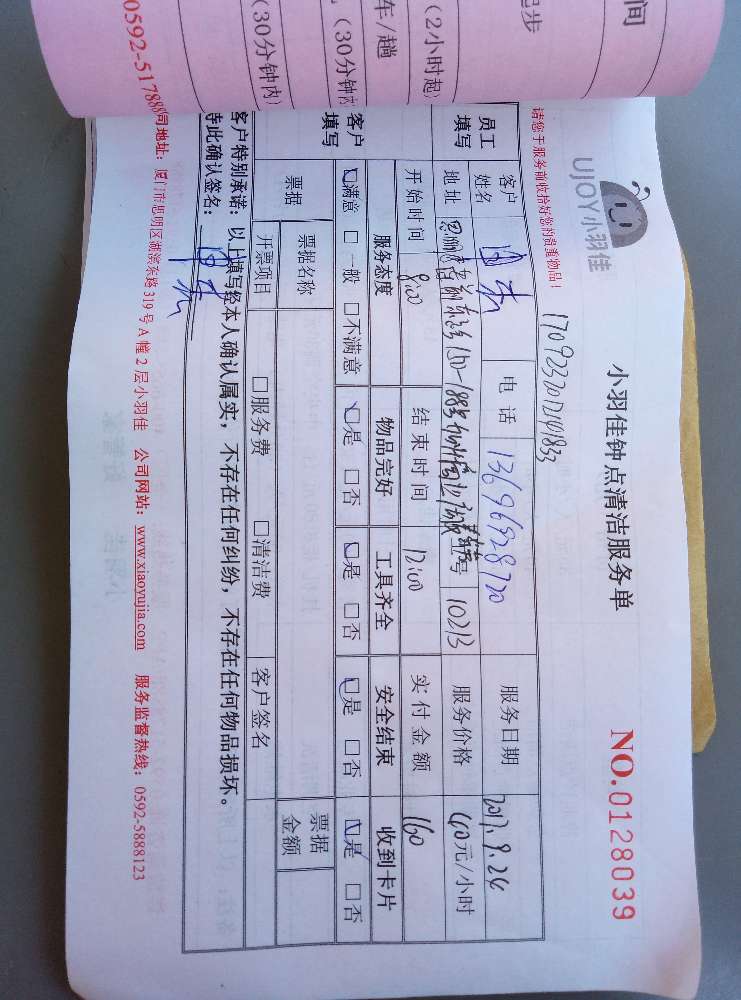 间
起步
(2小时起)
车/趟
(30分钟内
(30分钟内)
0592-5178888
UJOY小羽佳
小羽佳钟点清洁服务单
NO.0128039
请您于服务前收拾好您的贵重物品！
员工填写
客户姓名
电话
13696928720
服务日期
2017.9.24
地址
号
10213
服务价格
40元/小时
开始时间
8:00
结束时间
12:00
实付金额
160
客户填写
服务态度
物品完好
工具齐全
安全结束
收到卡片
☑满意 □一般 □不满意
☑是 □否
☑是 □否
☑是 □否
☑是 □否
票据
票据名称
票据金额
开票项目
□服务费 □清洁费
客户签名
客户特别承诺：以上填写经本人确认属实，不存在任何纠纷，不存在任何物品损坏。
特此确认签名：
司地址：厦门市思明区湖滨东路319号A幢2层小羽佳 公司网站：www.xiaoyujia.com 服务监督热线：0592-5888123